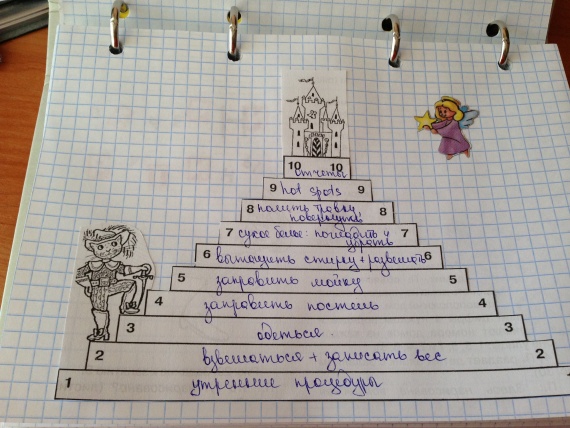 10 10
отчеты
9 hot spots 9
8 полить травы 8
поверхность
7 сухое белье: погладить и 7
убрать
6 вытащить стирку + развешать 6
5 заправить мойку 5
4 заправить постель 4
3 одеться. 3
2 взвешаться + записать вес 2
1 утренние процедуры